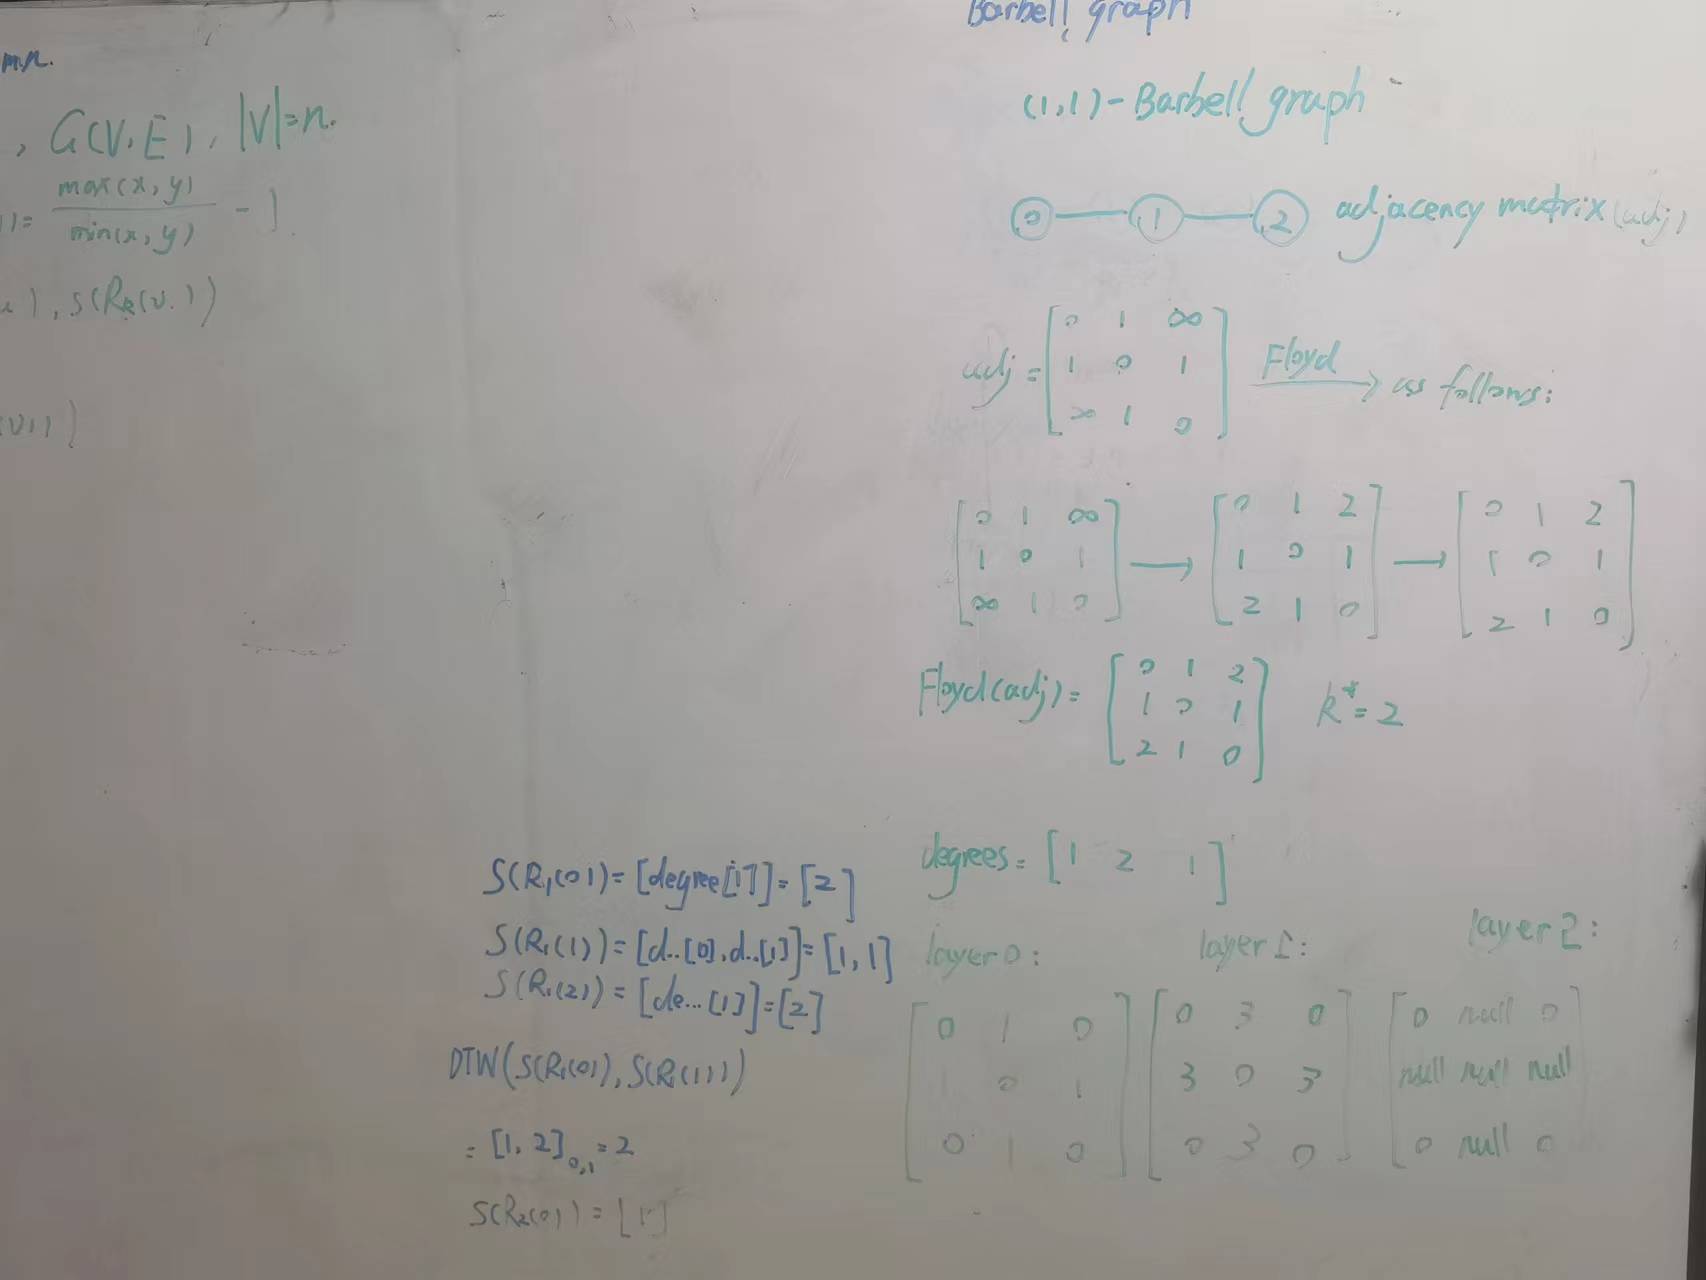 m.n.
, G(V,E), |V|=n.
max(x, y)
)= ———— - 1
min(x, y)
), S(Rk(v.)
(v))
Barbell graph
(1,1)-Barbell graph
0 — 1 — 2 adjacency matrix(adj)
adj = [0 1 ∞
1 0 1
∞ 1 0] Floyd → as follows:
[0 1 ∞
1 0 1
∞ 1 0] → [0 1 2
1 0 1
2 1 0] → [0 1 2
1 0 1
2 1 0]
Floyd(adj) = [0 1 2
1 0 1
2 1 0] k*=2
degrees = [1 2 1]
layer 0: layer 1: layer 2:
[0 1 0
1 0 1
0 1 0] [0 3 0
3 0 3
0 3 0] [0 null 0
null null null
0 null 0]
S(R1(0)) = [degree[1]] = [2]
S(R1(1)) = [d..[0], d..[1]] = [1, 1]
S(R1(2)) = [de...[1]] = [2]
DTW(S(R1(0)), S(R1(1)))
= [1, 2]0,1 = 2
S(R2(0)) = [1]